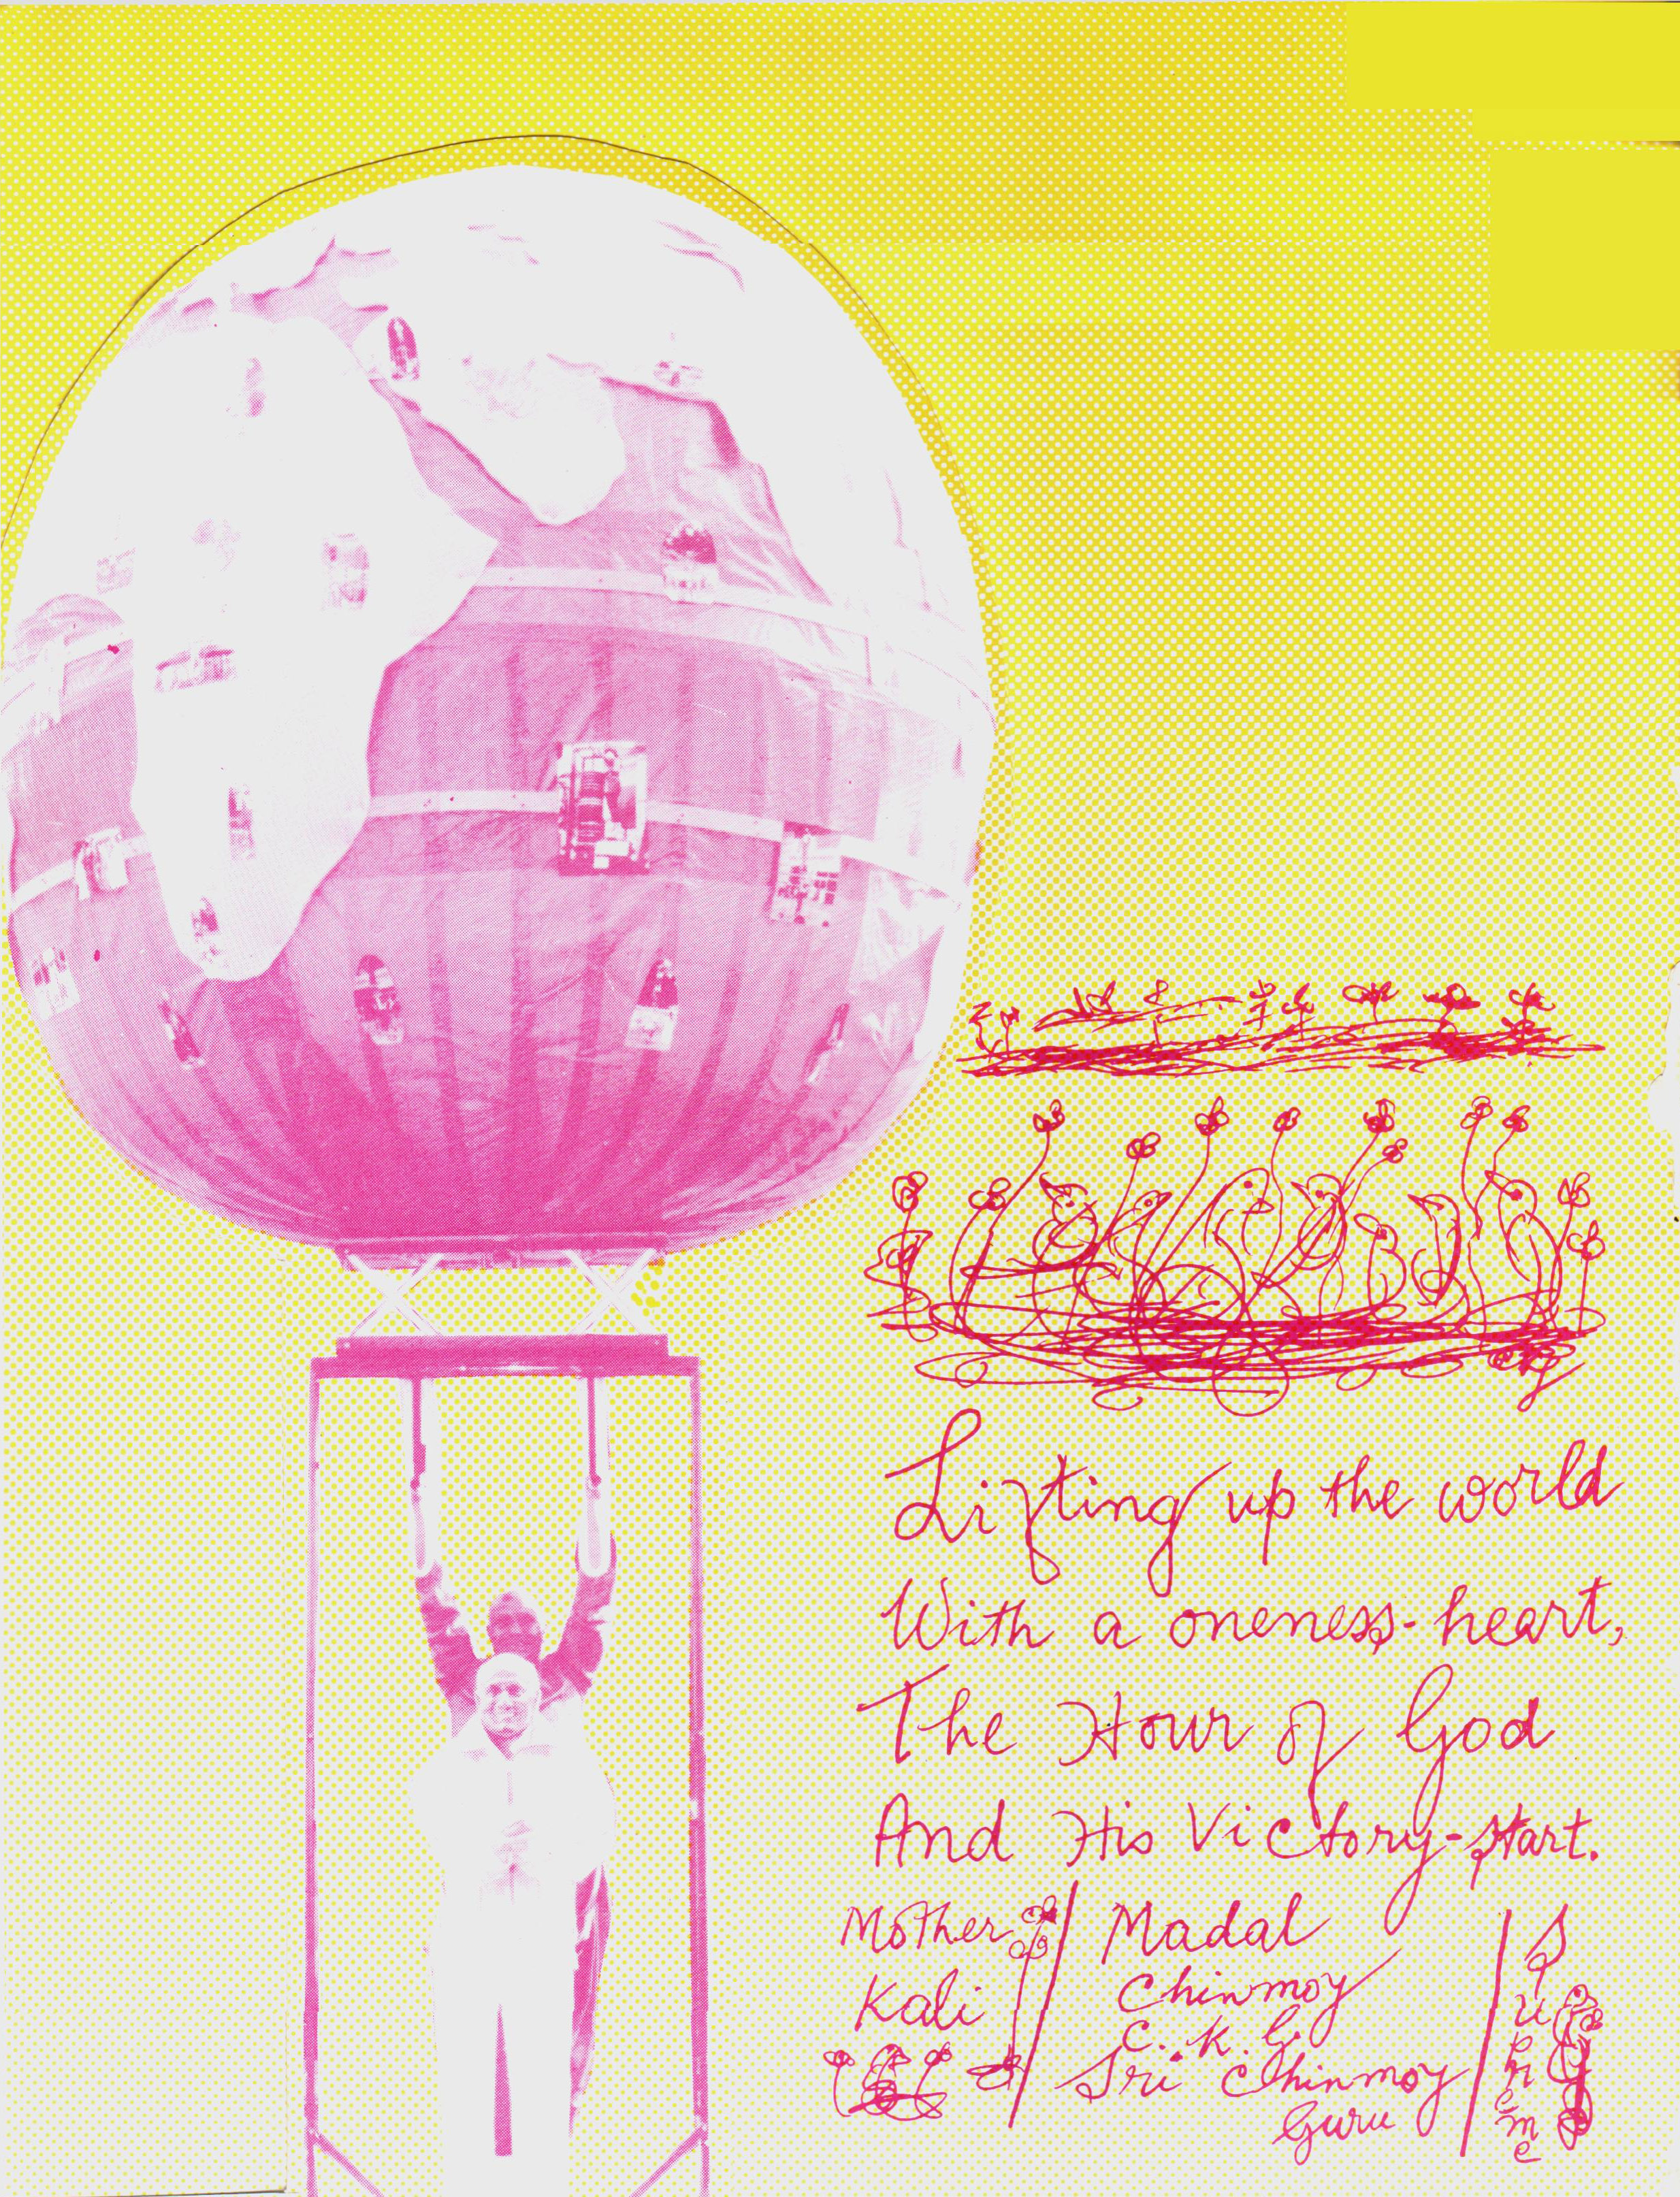 Lifting up the world
With a oneness-heart,
The Hour of God
And His Victory-start.
Mother
Kali
Madal
Chinmoy
C. K. G.
Sri Chinmoy
Guru
Supreme